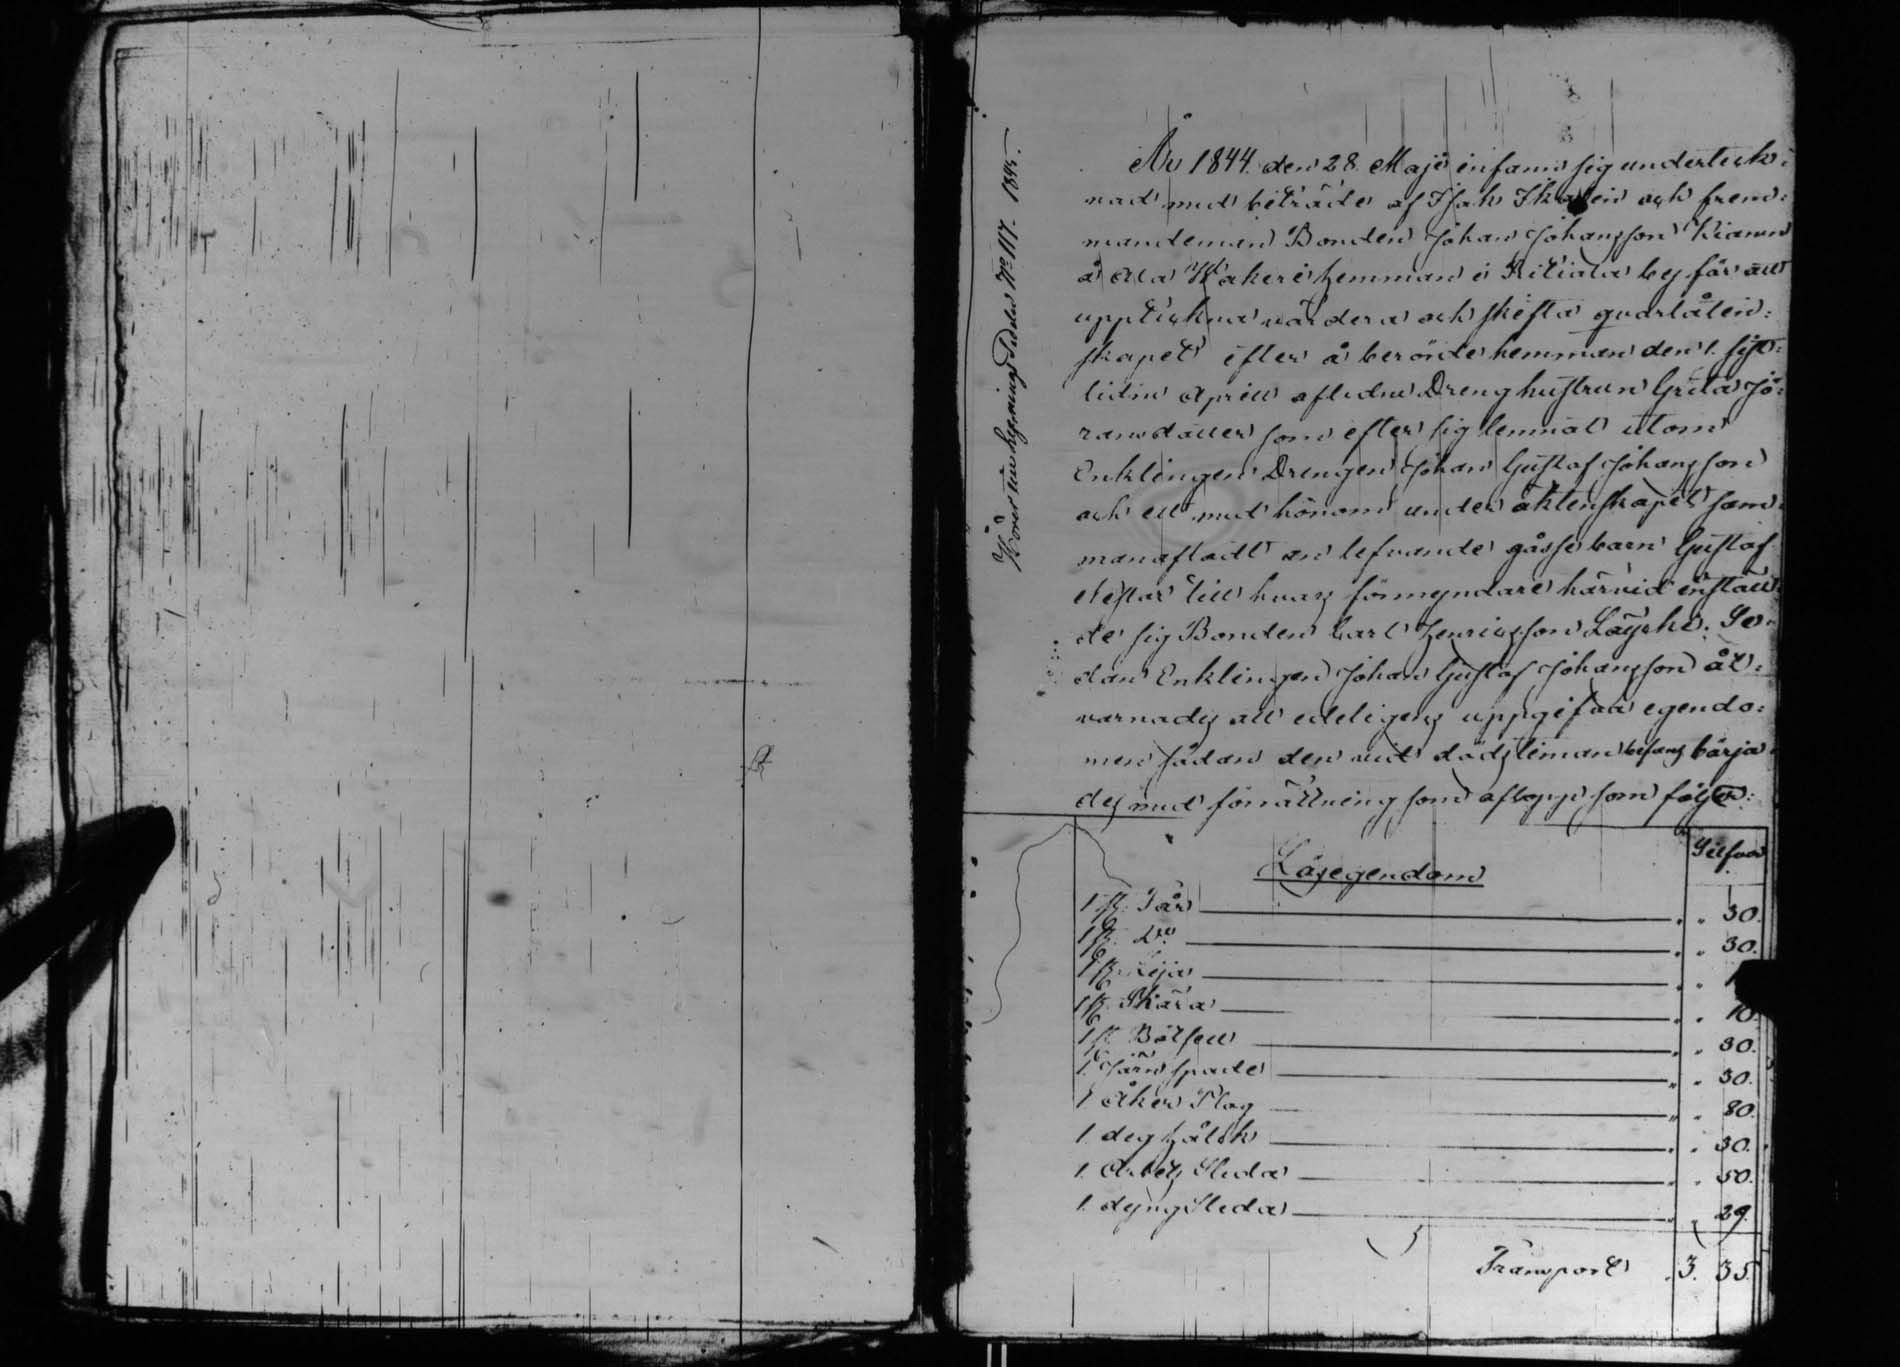 Hörer till hyrnings Sedel No 117. 1845.
År 1844. den 28 Maji infann sig underteck=
nad med biträde af Isak och frem=
mande män Bonden Johan Johansson
å Ala hemman i by för att
uppteckna värdera och skifta qvarlåten=
skapet efter å berörde hemman den 1. sist=
lidne April aflidne Drenghustrun Greta Jö=
ransdotter som efter sig lemnat utom
Enklingen Drengen Johan Gustaf Johansson
och ett med honom under äktenskapet sam=
manafladt än lefvande gåsse barn Gustaf
till hvars förmyndare härvid instäld=
de sig Bonden Carl Henricsson Se=
dan Enklingen Johan Gustaf Johansson åt=
varnads att edeligen uppgifva egendo=
men sådan den vid dödstiman befans börja=
des med förrättning som aflopp som följer:
Silfver
Lösegendom
1 st. Tår " " 30.
1 st. Do " " 30.
1 st. Lija " "
1 st. Skära " " 10.
1 st. Båtsell " " 30.
1. Järn spade " " 30.
1 Åker Plog " " 80.
1. deg " " 30.
1. Arbets Släda " " 50.
1. dyng Släda " " 29.
Transport 3. 35.